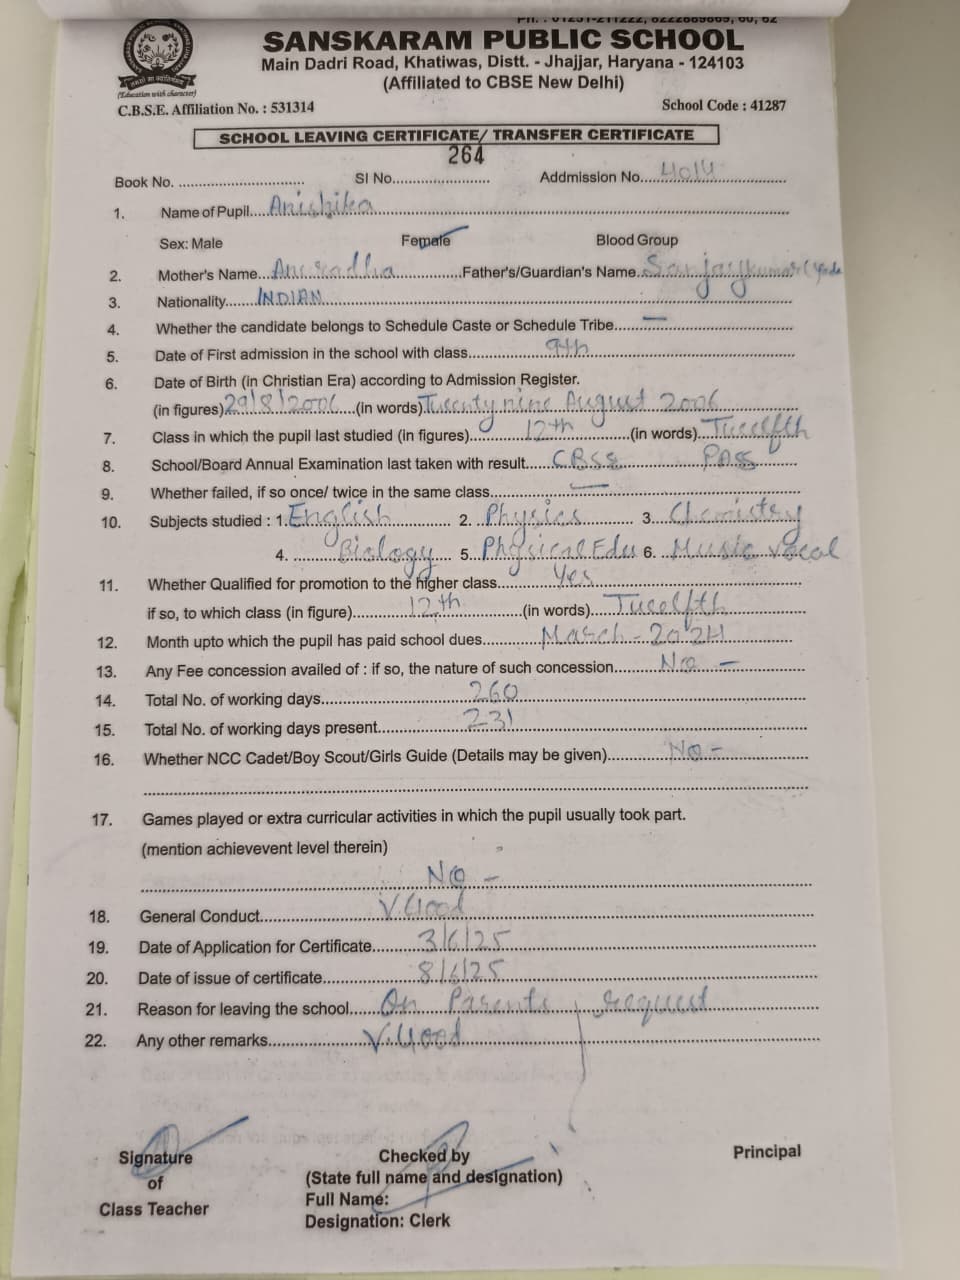 SANSKARAM PUBLIC SCHOOL
Main Dadri Road, Khatiwas, Distt. - Jhajjar, Haryana - 124103
(Affiliated to CBSE New Delhi)
(Education with character)
C.B.S.E. Affiliation No. : 531314 School Code : 41287
SCHOOL LEAVING CERTIFICATE/ TRANSFER CERTIFICATE
264
Book No. SI No. Addmission No. 4014
1. Name of Pupil Anishika
Sex: Male Female Blood Group
2. Mother's Name Anuradha Father's/Guardian's Name Sanjaykumar
3. Nationality INDIAN
4. Whether the candidate belongs to Schedule Caste or Schedule Tribe —
5. Date of First admission in the school with class 9th
6. Date of Birth (in Christian Era) according to Admission Register.
(in figures) 29/8/2006 (in words) Twenty nine August 2006
7. Class in which the pupil last studied (in figures) 12th (in words) Twelfth
8. School/Board Annual Examination last taken with result CBSE PASS
9. Whether failed, if so once/ twice in the same class —
10. Subjects studied : 1. English 2. Physics 3. Chemistry
4. Biology 5. Physical Edu 6. Music vocal
11. Whether Qualified for promotion to the higher class Yes
if so, to which class (in figure) 12th (in words) Twelfth
12. Month upto which the pupil has paid school dues March - 2024
13. Any Fee concession availed of : if so, the nature of such concession No —
14. Total No. of working days 260
15. Total No. of working days present 231
16. Whether NCC Cadet/Boy Scout/Girls Guide (Details may be given) No -
17. Games played or extra curricular activities in which the pupil usually took part.
(mention achievevent level therein)
No -
18. General Conduct V.Good
19. Date of Application for Certificate 3/6/25
20. Date of issue of certificate 8/6/25
21. Reason for leaving the school On Parents request
22. Any other remarks V.Good
Signature Checked by Principal
of (State full name and designation)
Class Teacher Full Name:
Designation: Clerk